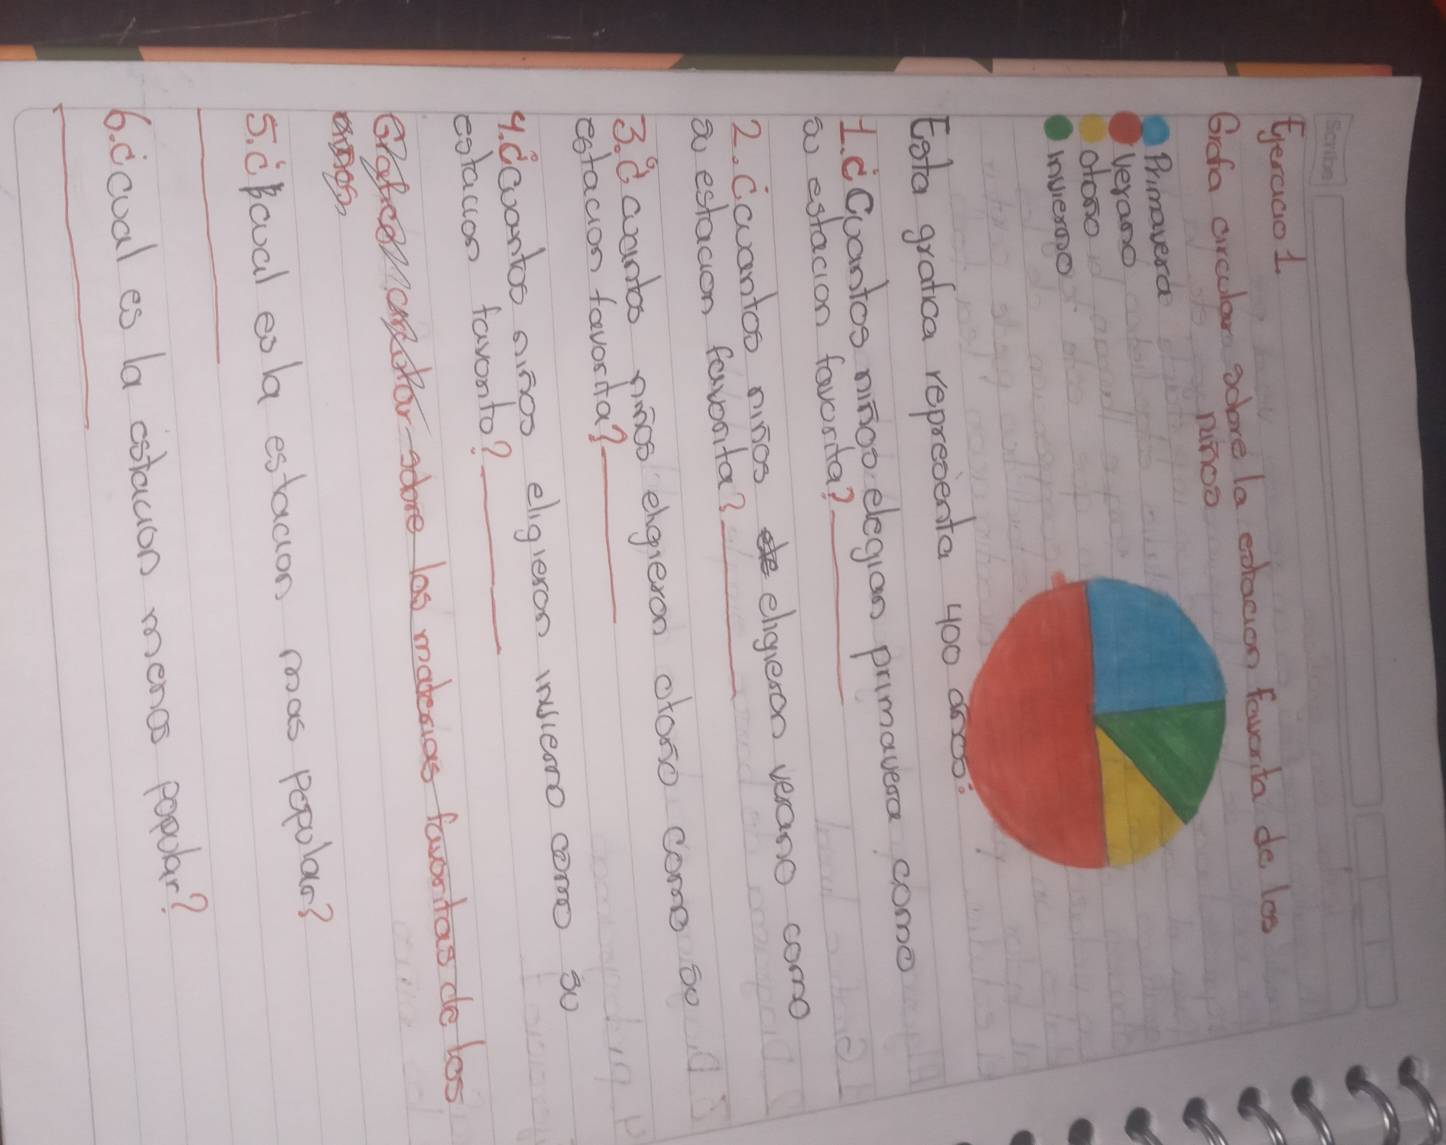 Scribe
Ejercicio 1
Grafia circular sobre la estacion favorita de los
niños
Primavera
Verano
otoño
invierno
Esta grafica representa 400 años:
1. ¿Cuantos niños elegian primavera como
su estacion favorita?
2. ¿cuantos niños eligieron verano como
su estacion favorita?
3. ¿cuantos niños eligieron otoño como su
estacion favorita?
4. ¿cuantos niños eligieron invierno como su
estacion favorito?
sobre las materias favoritas de los
5. ¿cual es la estacion mas popular?
6. ¿cual es la estacion menos popular?